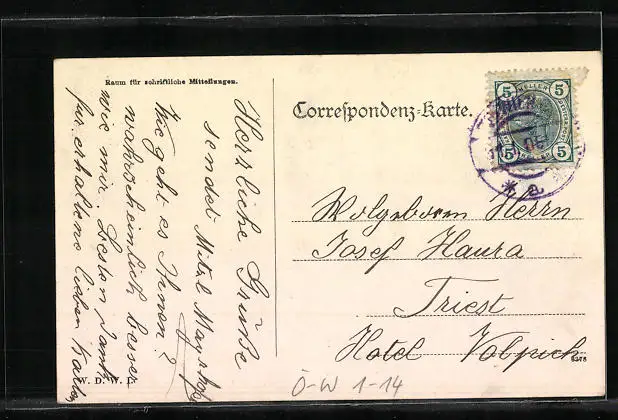 Raum für schriftliche Mitteilungen.
Herzliche Grüße
sendet Mitzl Mayrhof
Wie geht es Ihnen?
wahrscheinlich besser
wie mir. Besten Dank
für erhaltene lieben Karte,
W. D. W. I.
Correspondenz-Karte.
5 HELLER 5
5 5
* a *
Wolgeborn Herrn
Josef Haura
Triest
Hotel Volpich
5378
Ö-W 1-14